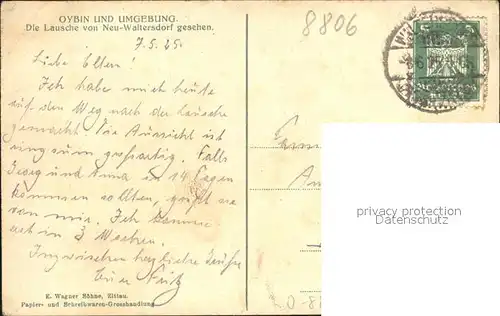 OYBIN UND UMGEBUNG.
Die Lausche von Neu-Waltersdorf gesehen.
8806
7.5.25.
Liebe Eltern!
Ich habe mich heute
auf den Weg nach der Lausche
gemacht. Die Aussicht ist
ringsum großartig. Falls
Georg und Anna in 14 Tagen
kommen sollten, grüßt sie
von mir. Ich komme
in 3 Wochen.
Inzwischen herzliche Grüße
Euer Fritz
privacy protection
Datenschutz
E. Wagner Söhne, Zittau.
Papier- und Schreibwaren-Grosshandlung